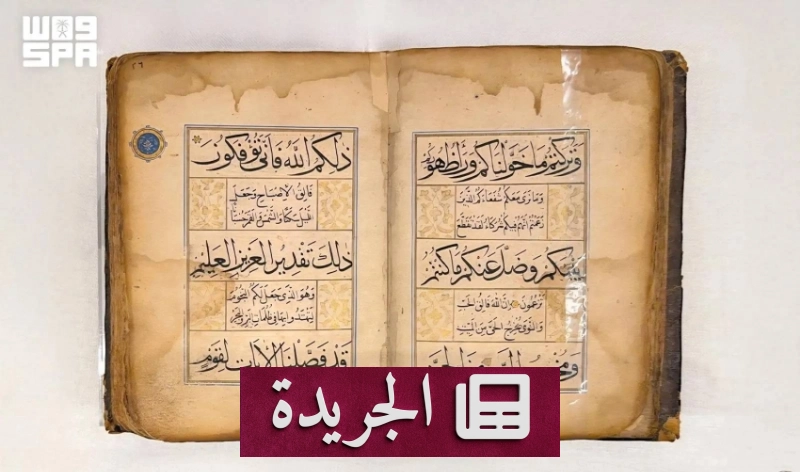 واس
SPA
وتركتم ما خولناكم وراء ظهور
وما نرى معكم شفعاءكم الذين
زعمتم أنهم فيكم شركاء لقد تقطع
بينكم وضل عنكم ما كنتم
تزعمون إن الله فالق الحب
والنوى يخرج الحي من الميت
ومخرج الميت من الحي
ذلكم الله فأنى تؤفكون
فالق الإصباح وجعل
الليل سكنا والشمس والقمر حسبانا
ذلك تقدير العزيز العليم
وهو الذي جعل لكم النجوم
ليهتدوا بها في ظلمات البر والبحر
قد فصلنا الآيات لقوم
الجريدة